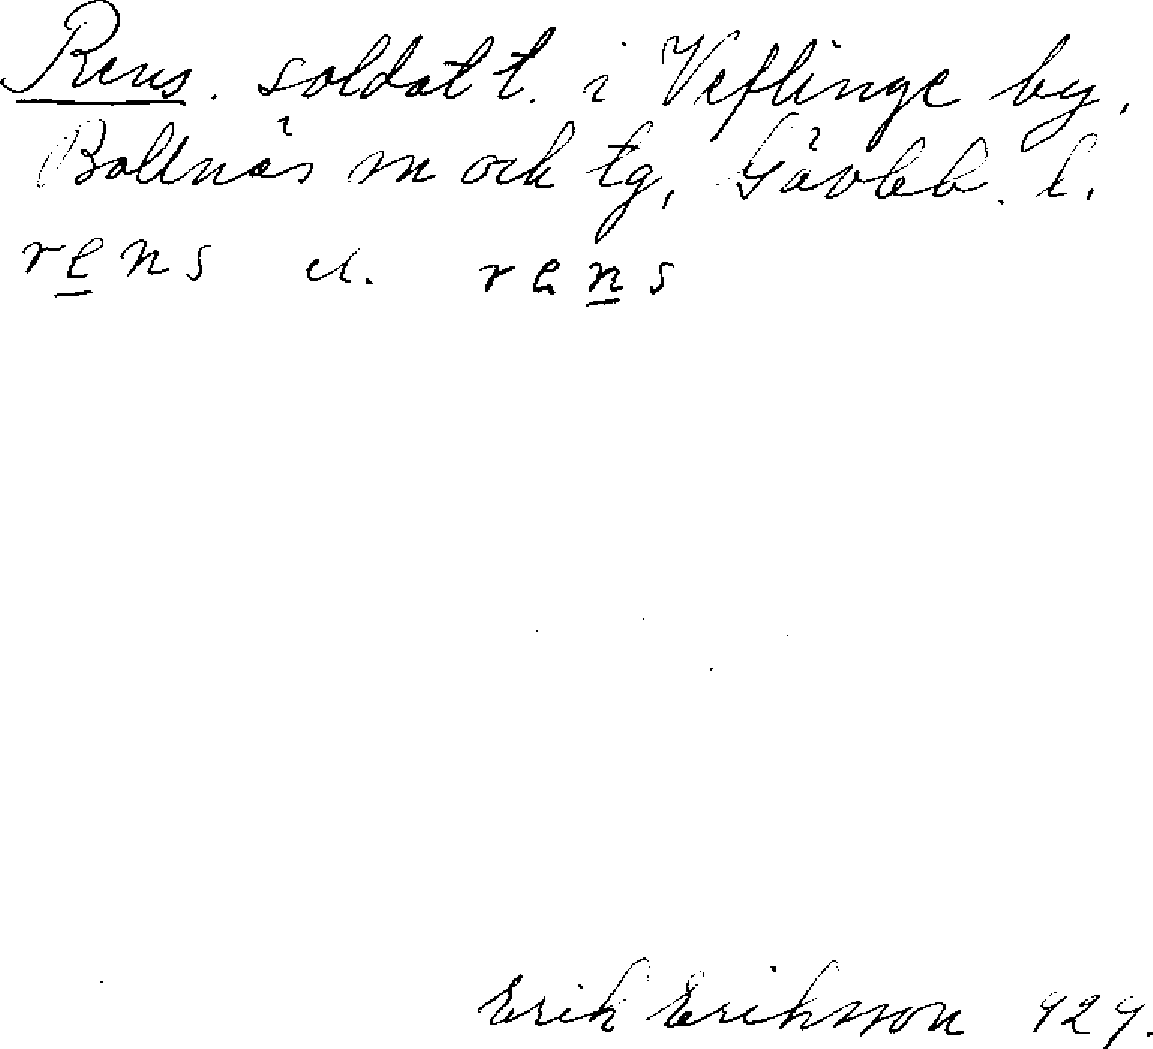 Rens. soldatt. i Veflinge by,
Bollnäs sn och tg, Gävleb. l.
rens el. rens
Erik Eriksson 1929.